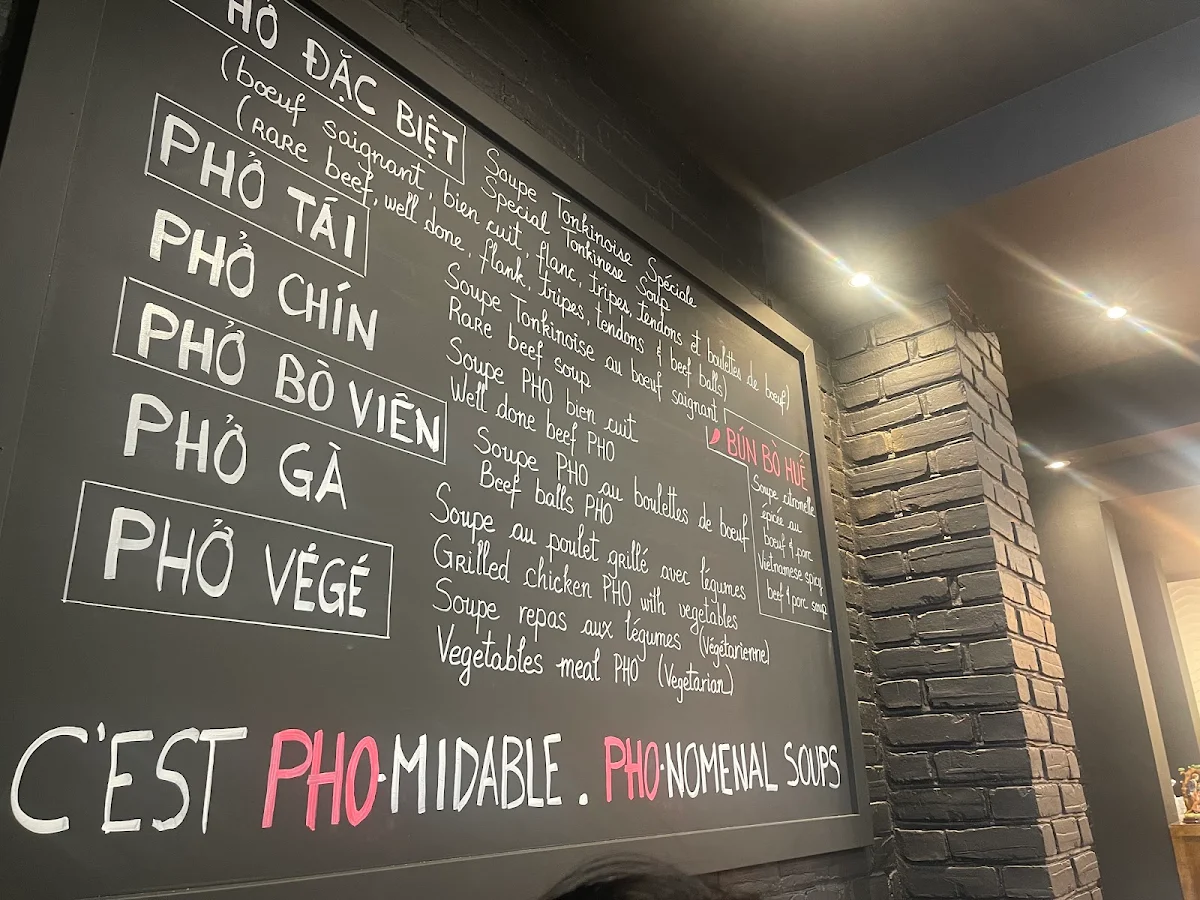 HỞ ĐẶC BIỆT
Soupe Tonkinoise Spéciale
Special Tonkinese Soup
(boeuf saignant, bien cuit, flanc, tripes, tendons et boulettes de boeuf)
(RARE beef, well done, flank, tripes, tendons & beef balls)
PHỞ TÁI
Soupe Tonkinoise au boeuf saignant
RARE beef soup
PHỞ CHÍN
Soupe PHO bien cuit
Well done beef PHO
PHỞ BÒ VIÊN
Soupe PHO au boulettes de boeuf
Beef balls PHO
PHỞ GÀ
Soupe au poulet grillé avec légumes
Grilled chicken PHO with vegetables
PHỞ VÉGÉ
Soupe repas aux légumes (végétarienne)
Vegetables meal PHO (Vegetarian)
BÚN BÒ HUẾ
Soupe citronelle
épicée au
boeuf & porc
Vietnamese spicy
beef & porc soup
C'EST PHO-MIDABLE. PHO-NOMENAL SOUPS